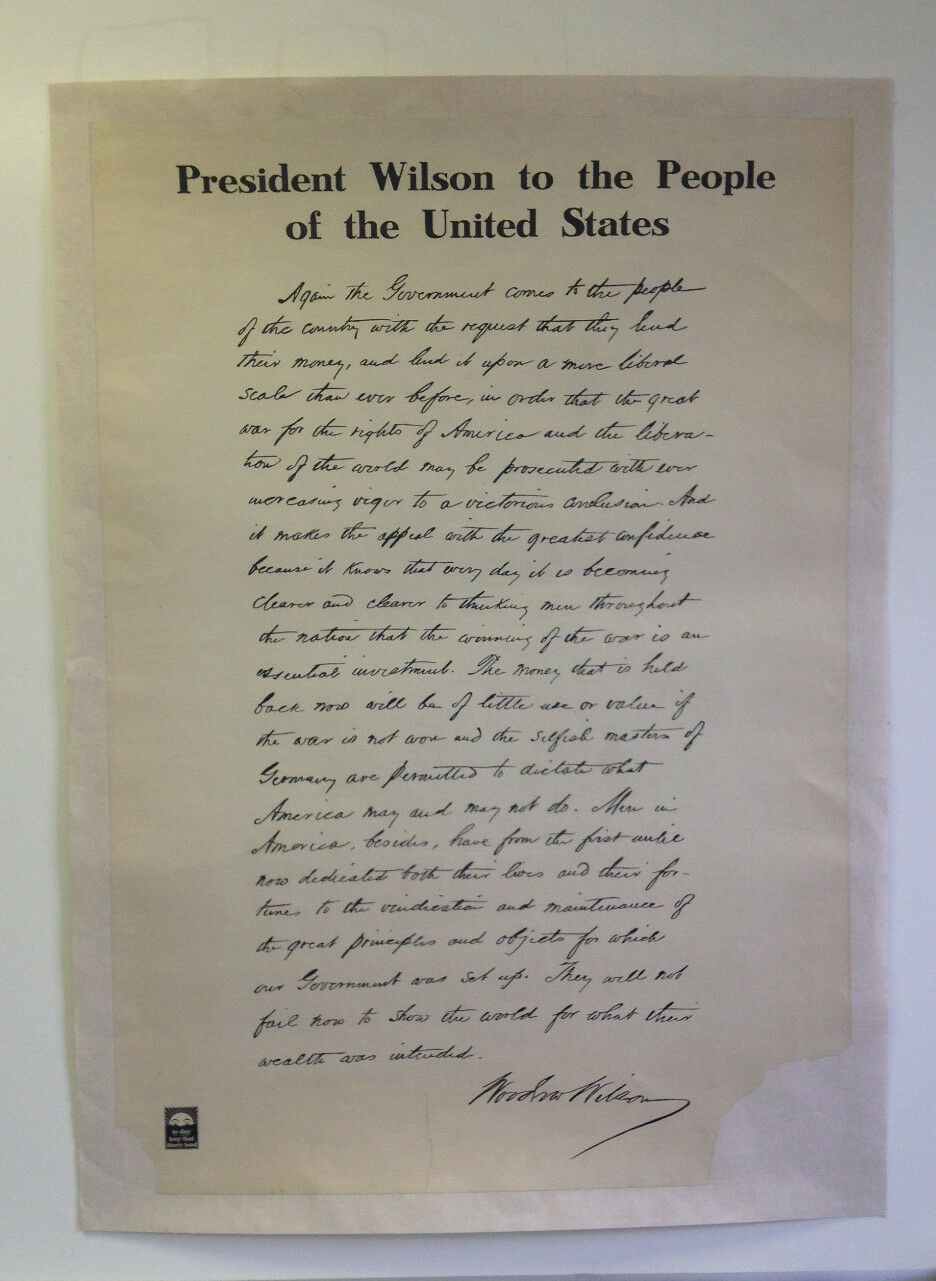 President Wilson to the People
of the United States
Again the Government comes to the people
of the country with the request that they lend
their money, and lend it upon a more liberal
scale than ever before, in order that the great
war for the rights of America and the libera-
tion of the world may be prosecuted with ever
increasing vigor to a victorious conclusion. And
it makes the appeal with the greatest confidence
because it knows that every day it is becoming
clearer and clearer to thinking men throughout
the nation that the winning of the war is an
essential investment. The money that is held
back now will be of little use or value if
the war is not won and the selfish masters of
Germany are permitted to dictate what
America may and may not do. Men in
America, besides, have from the first until
now dedicated both their lives and their for-
tunes to the vindication and maintenance of
the great principles and objects for which
our Government was set up. They will not
fail now to show the world for what their
wealth was intended.
Woodrow Wilson
to-day
buy that
liberty bond